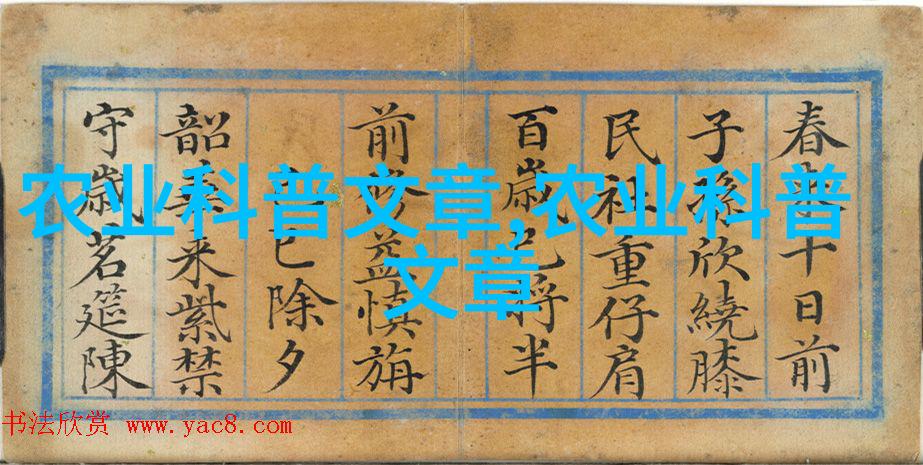 春十日前
子孫欣繞膝
民社重仔肩
百歲已將半
前益慎旃
巳除夕
韶来紫禁
守歲茗筵陳
农业科普文章,农业科普
文章
书法欣赏 www.yac8.com